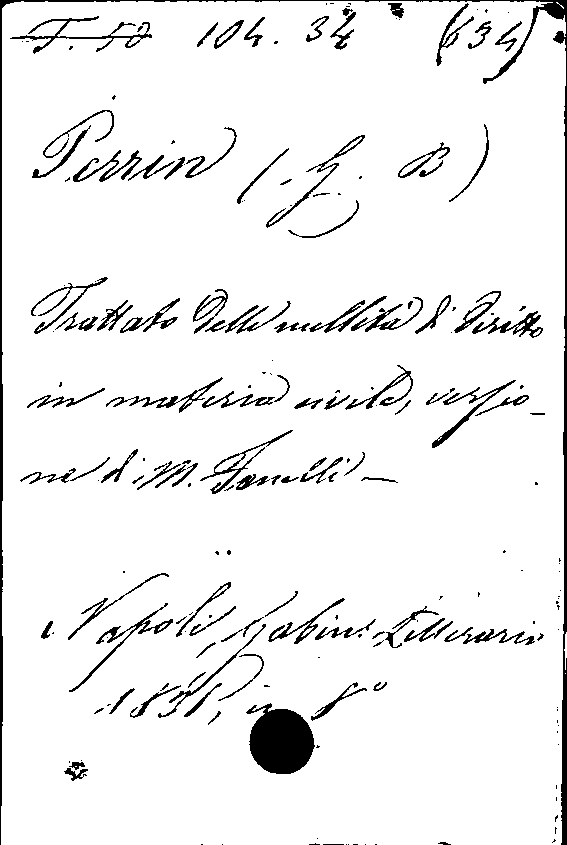 T. 50 104. 34 (634)
Perrin (G. B)
Trattato delle nullità di diritto
in materia civile, versio-
ne di M. Fanelli -
Napoli, Gabin. Letterario
in 8°